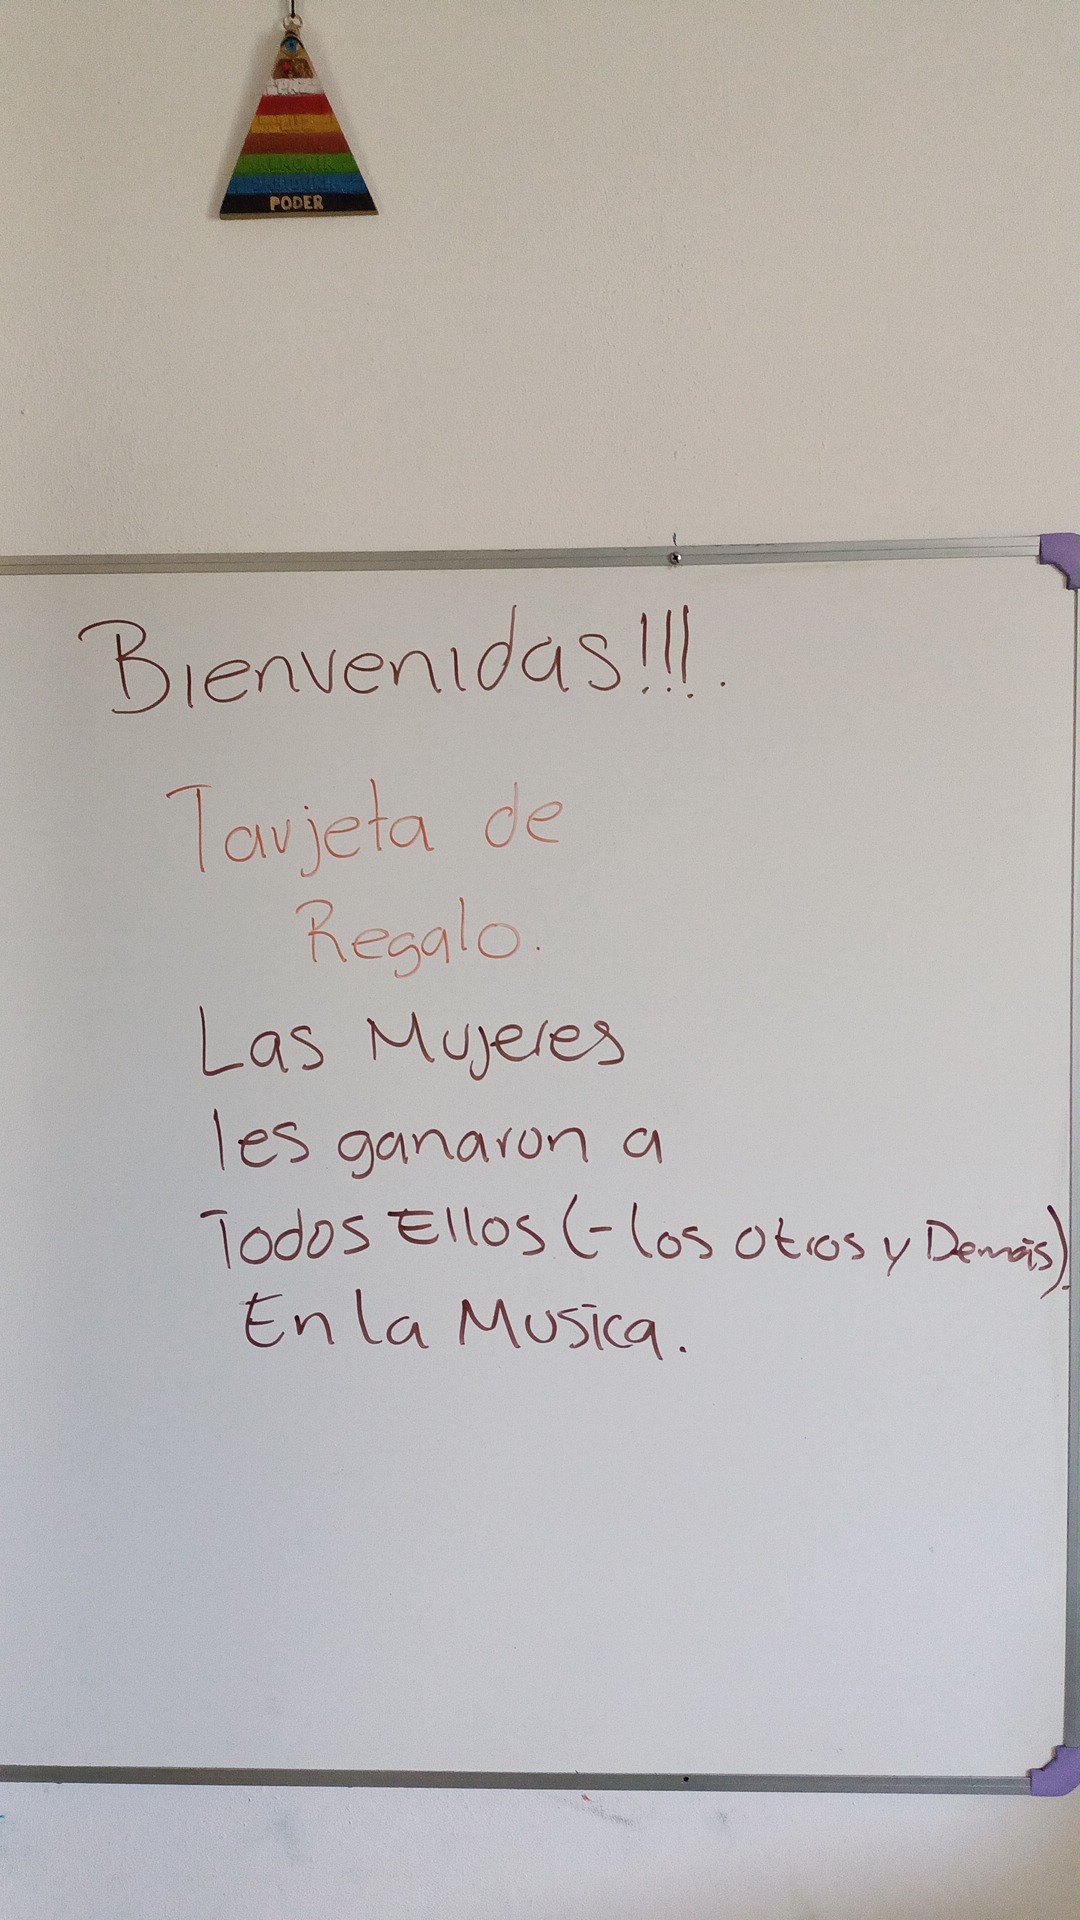 PODER
Bienvenidas!!!.
Tarjeta de
Regalo.
Las Mujeres
les ganaron a
Todos Ellos (- los otros y Demás).
En la Musica.